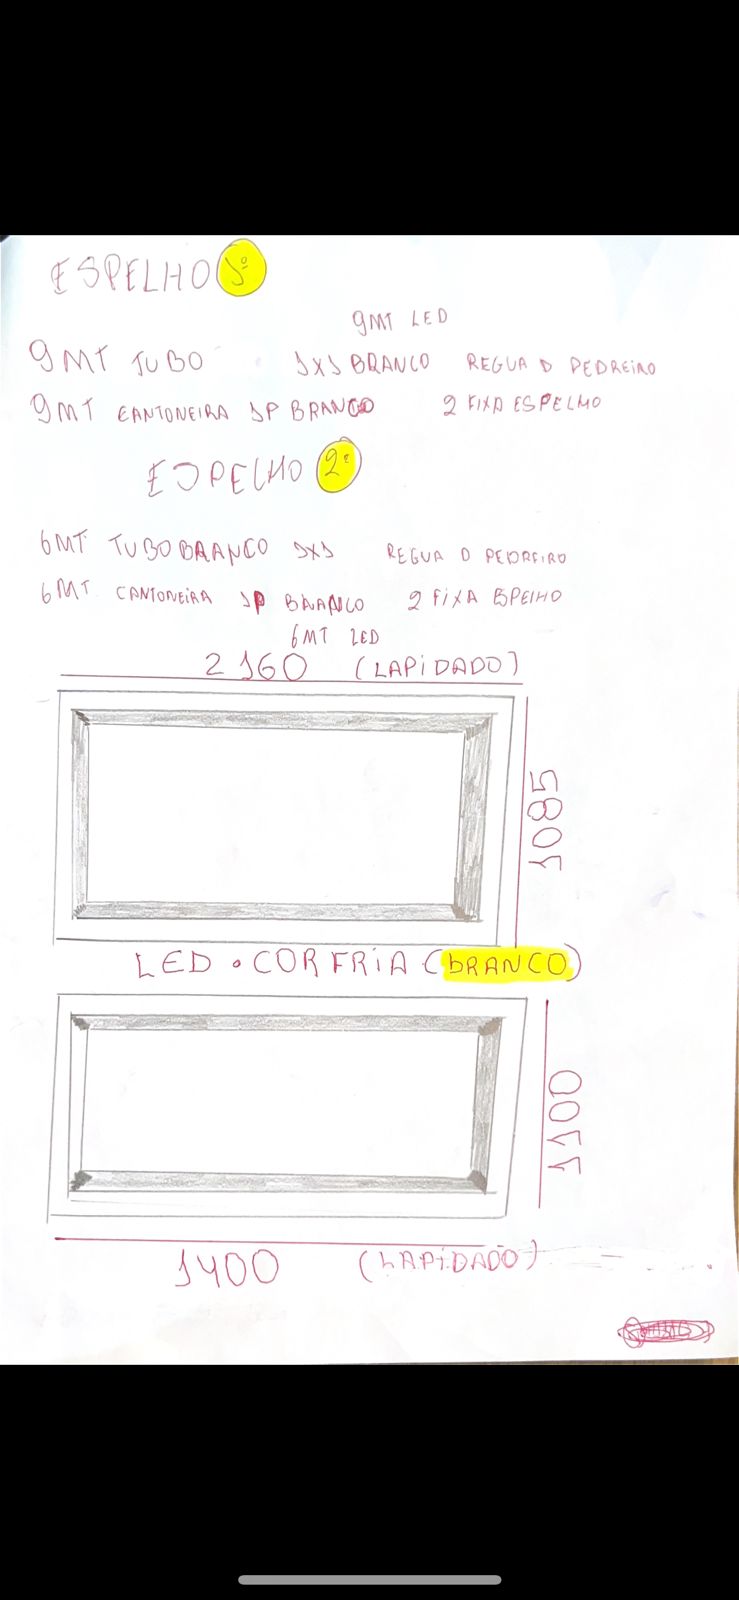 ESPELHO 1º
9MT LED
9MT TUBO 1X1 BRANCO REGUA D PEDREIRO
9MT CANTONEIRA 1P BRANCO 2 FIXA ESPELHO
ESPELHO 2º
6MT TUBO BRANCO 1X1 REGUA D PEDREIRO
6MT CANTONEIRA 1P BRANCO 2 FIXA ESPELHO
6MT LED
2160 (LAPIDADO)
1085
LED • COR FRIA (BRANCO)
1100
1400 (LAPIDADO)